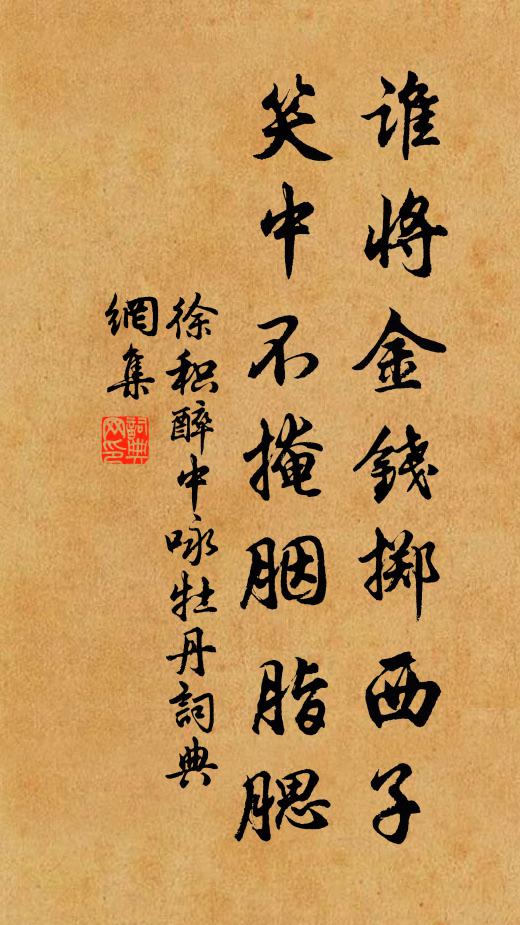 谁将金錢掷西子
笑中不掩胭脂腮
徐积醉中咏牡丹詞典
網集
詞典网印